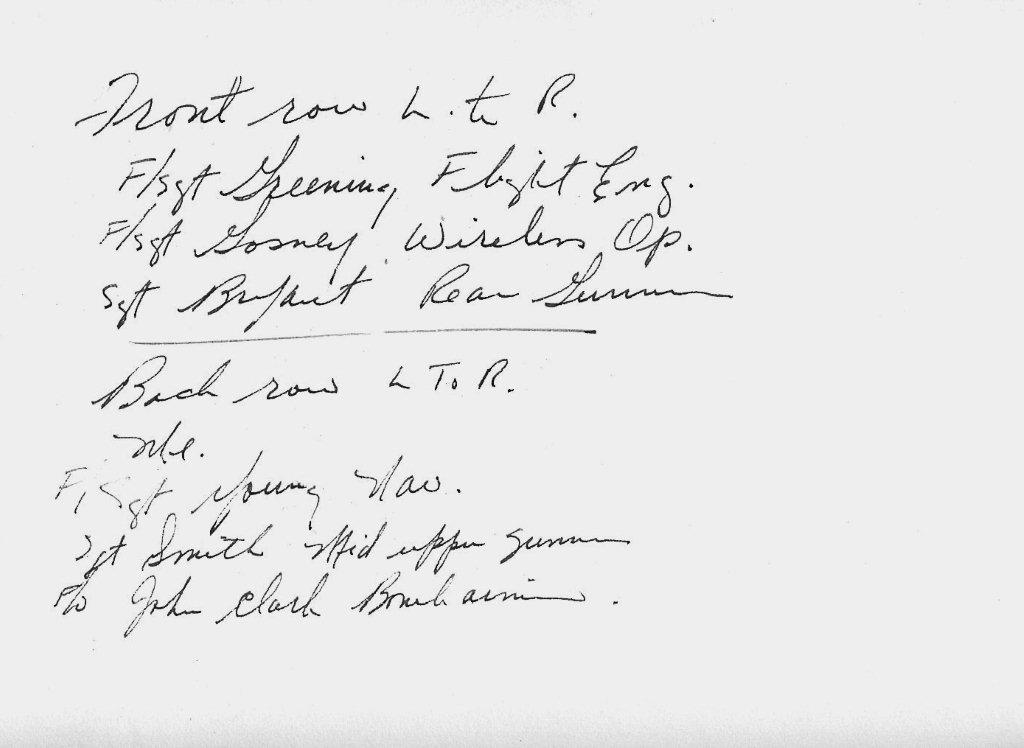 Front row L. to R.
F/Sgt Greening Flight Eng.
F/Sgt Gosney Wireless Op.
Sgt Bryant Rear Gunner
Back row L To R.
Me.
F/Sgt Young Nav.
Sgt Smith Mid upper gunner
F/O John Clark Bombaimer.